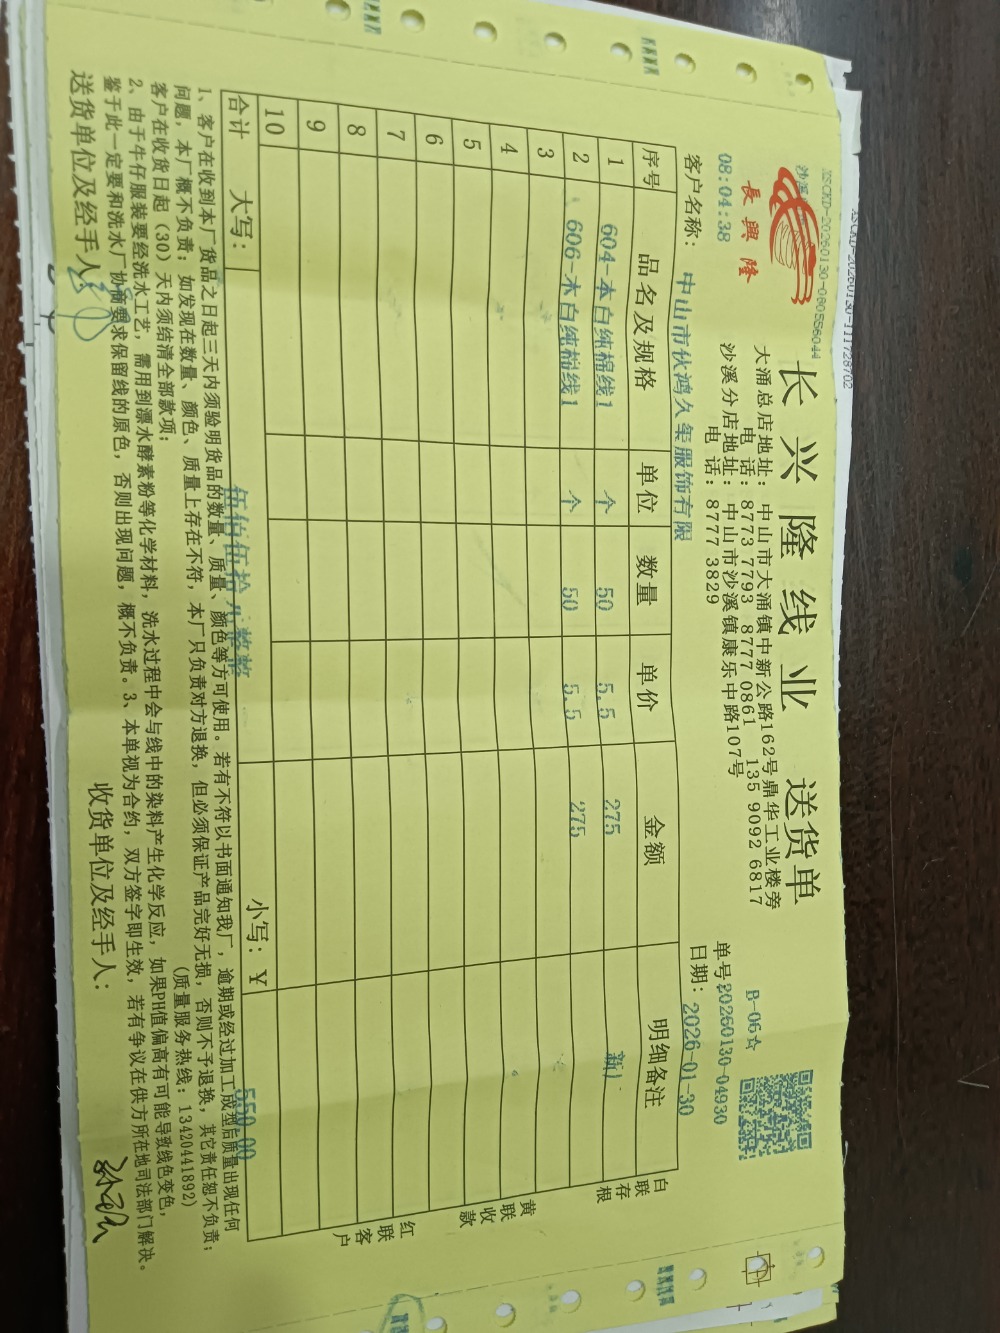 XSCKD-20260130-111728702
XSCKD-20260130-080556044
長興隆
长兴隆线业 送货单
B-06☆
大涌总店地址：中山市大涌镇中新公路162号鼎华工业楼旁
电 话：8773 7793 8777 0861 135 9092 6817
沙溪分店地址：中山市沙溪镇康乐中路107号
电 话：8777 3829
08:04:38
单号：20260130-04930
客户名称：中山市伙鸿久玺服饰有限
日期：2026-01-30
序号 品名及规格 单位 数量 单价 金额 明细备注
1 604-本白纯棉线1 个 50 5.5 275 新厂
2 606-本白纯棉线1 个 50 5.5 275
3
4
5
6
7
8
9
10
合计 大写： 伍佰伍拾元整整 小写：￥ 550.00
白联存根
黄联收款
红联客户
1、客户在收到本厂货品之日起三天内须验明货品的数量、质量、颜色等方可使用。若有不符以书面通知我厂，逾期或经过加工成型后质量出现任何
问题，本厂概不负责；如发现在数量、颜色、质量上存在不符，本厂只负责对方退换，但必须保证产品完好无损，否则不予退换，其它责任恕不负责；
客户在收货日起（30）天内须结清全部款项； （质量服务热线：13420441892）
2、由于牛仔服装要经洗水工艺，需用到漂水酵素粉等化学材料，洗水过程中会与线中的染料产生化学反应，如果PH值偏高有可能导致线色变色，
鉴于此一定要和洗水厂协商要求保留线的原色，否则出现问题，概不负责。3、本单视为合约，双方签字即生效，若有争议在供方所在地司法部门解决。
送货单位及经手人： 收货单位及经手人：